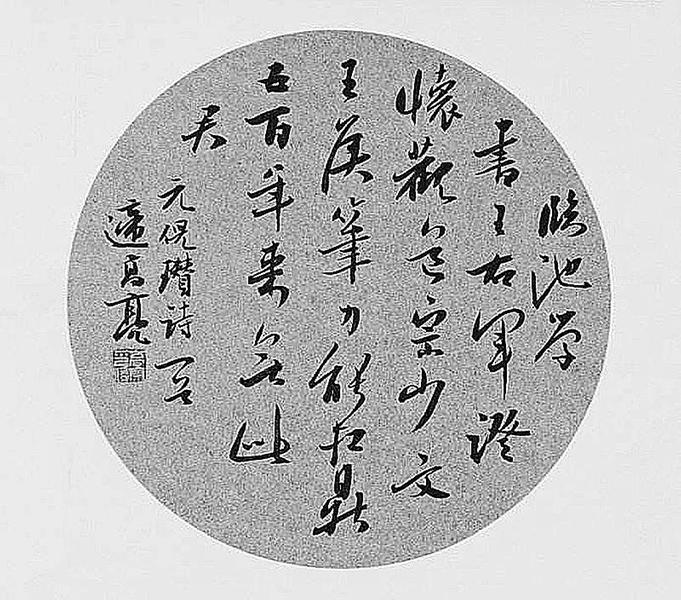 臨池学
書王右軍澄
懷觀道宗少文
王侯筆力能扛鼎
五百年来無此
君
元倪瓚詩一首
遆高亮